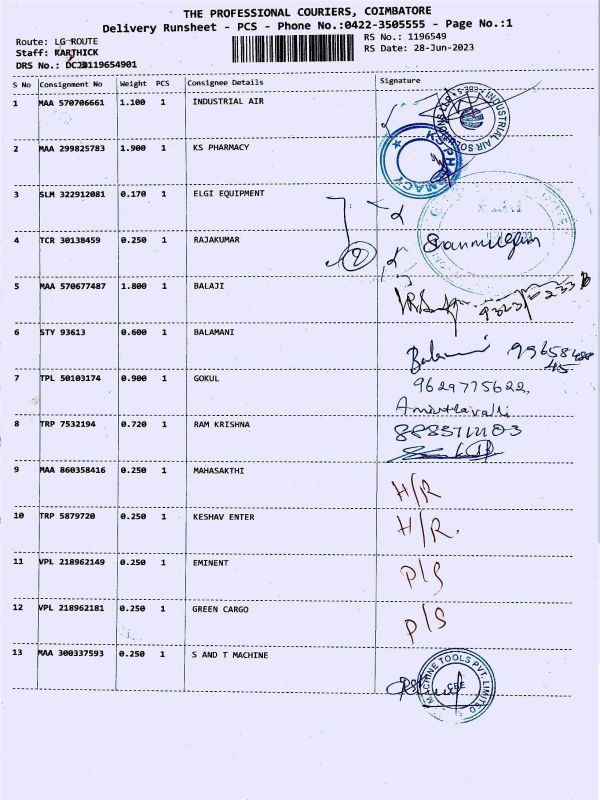 THE PROFESSIONAL COURIERS, COIMBATORE
Delivery Runsheet - PCS - Phone No.:0422-3505555 - Page No.:1
Route: LG ROUTE
RS No.: 1196549
Staff: KARTHICK
RS Date: 28-Jun-2023
DRS No.:
S No Consignment No Weight PCS Consignee Details Signature
1 MAA 570706661 1.100 1 INDUSTRIAL AIR
2 MAA 299825783 1.900 1 KS PHARMACY
3 SLM 322912081 0.170 1 ELGI EQUIPMENT
4 TCR 30138459 0.250 1 RAJAKUMAR
2
Shanmugam
5 MAA 570677487 1.800 1 BALAJI
6 STY 93613 0.600 1 BALAMANI
7 TPL 50103174 0.900 1 GOKUL 9629775622,
8 TRP 7532194 0.720 1 RAM KRISHNA
9 MAA 860358416 0.250 1 MAHASAKTHI H/R
10 TRP 5879720 0.250 1 KESHAV ENTER H/R.
11 VPL 218962149 0.250 1 EMINENT P/S
12 VPL 218962181 0.250 1 GREEN CARGO P/S
13 MAA 300337593 0.250 1 S AND T MACHINE
MACHINE TOOLS PVT. LIMITED
CBE